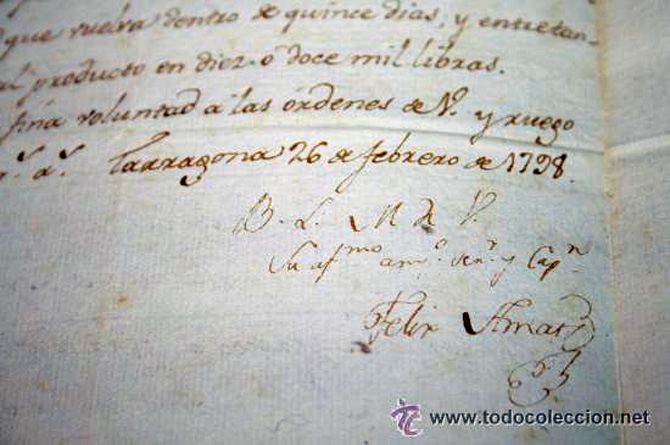 que vuelva dentro de quince dias, y entretan-
producto en diez o doce mil libras.
fina voluntad a las órdenes de V. y ruego
Tarragona 26 de febrero de 1798.
B. L. M. de V.
Su af.mo am.o ser.r y Cap.n
Felix Amat
www.todocoleccion.net